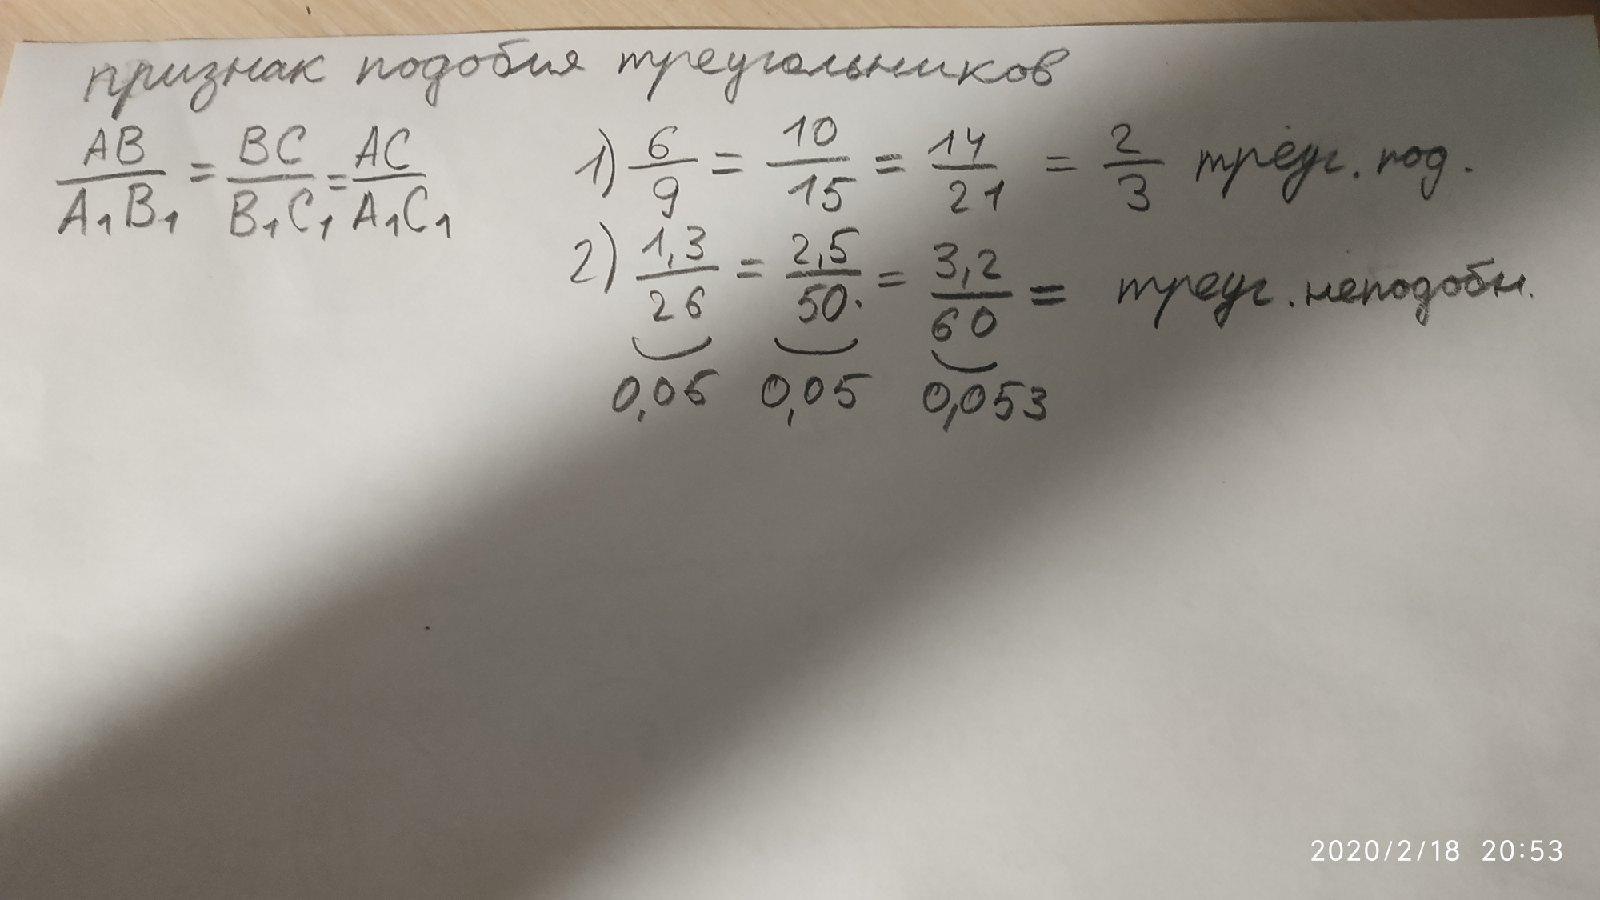 признак подобия треугольников
AB/A₁B₁ = BC/B₁C₁ = AC/A₁C₁
1) 6/9 = 10/15 = 14/21 = 2/3 треуг. под.
2) 1,3/26 = 2,5/50. = 3,2/60 = треуг. неподобн.
0,05 0,05 0,053
2020/2/18 20:53